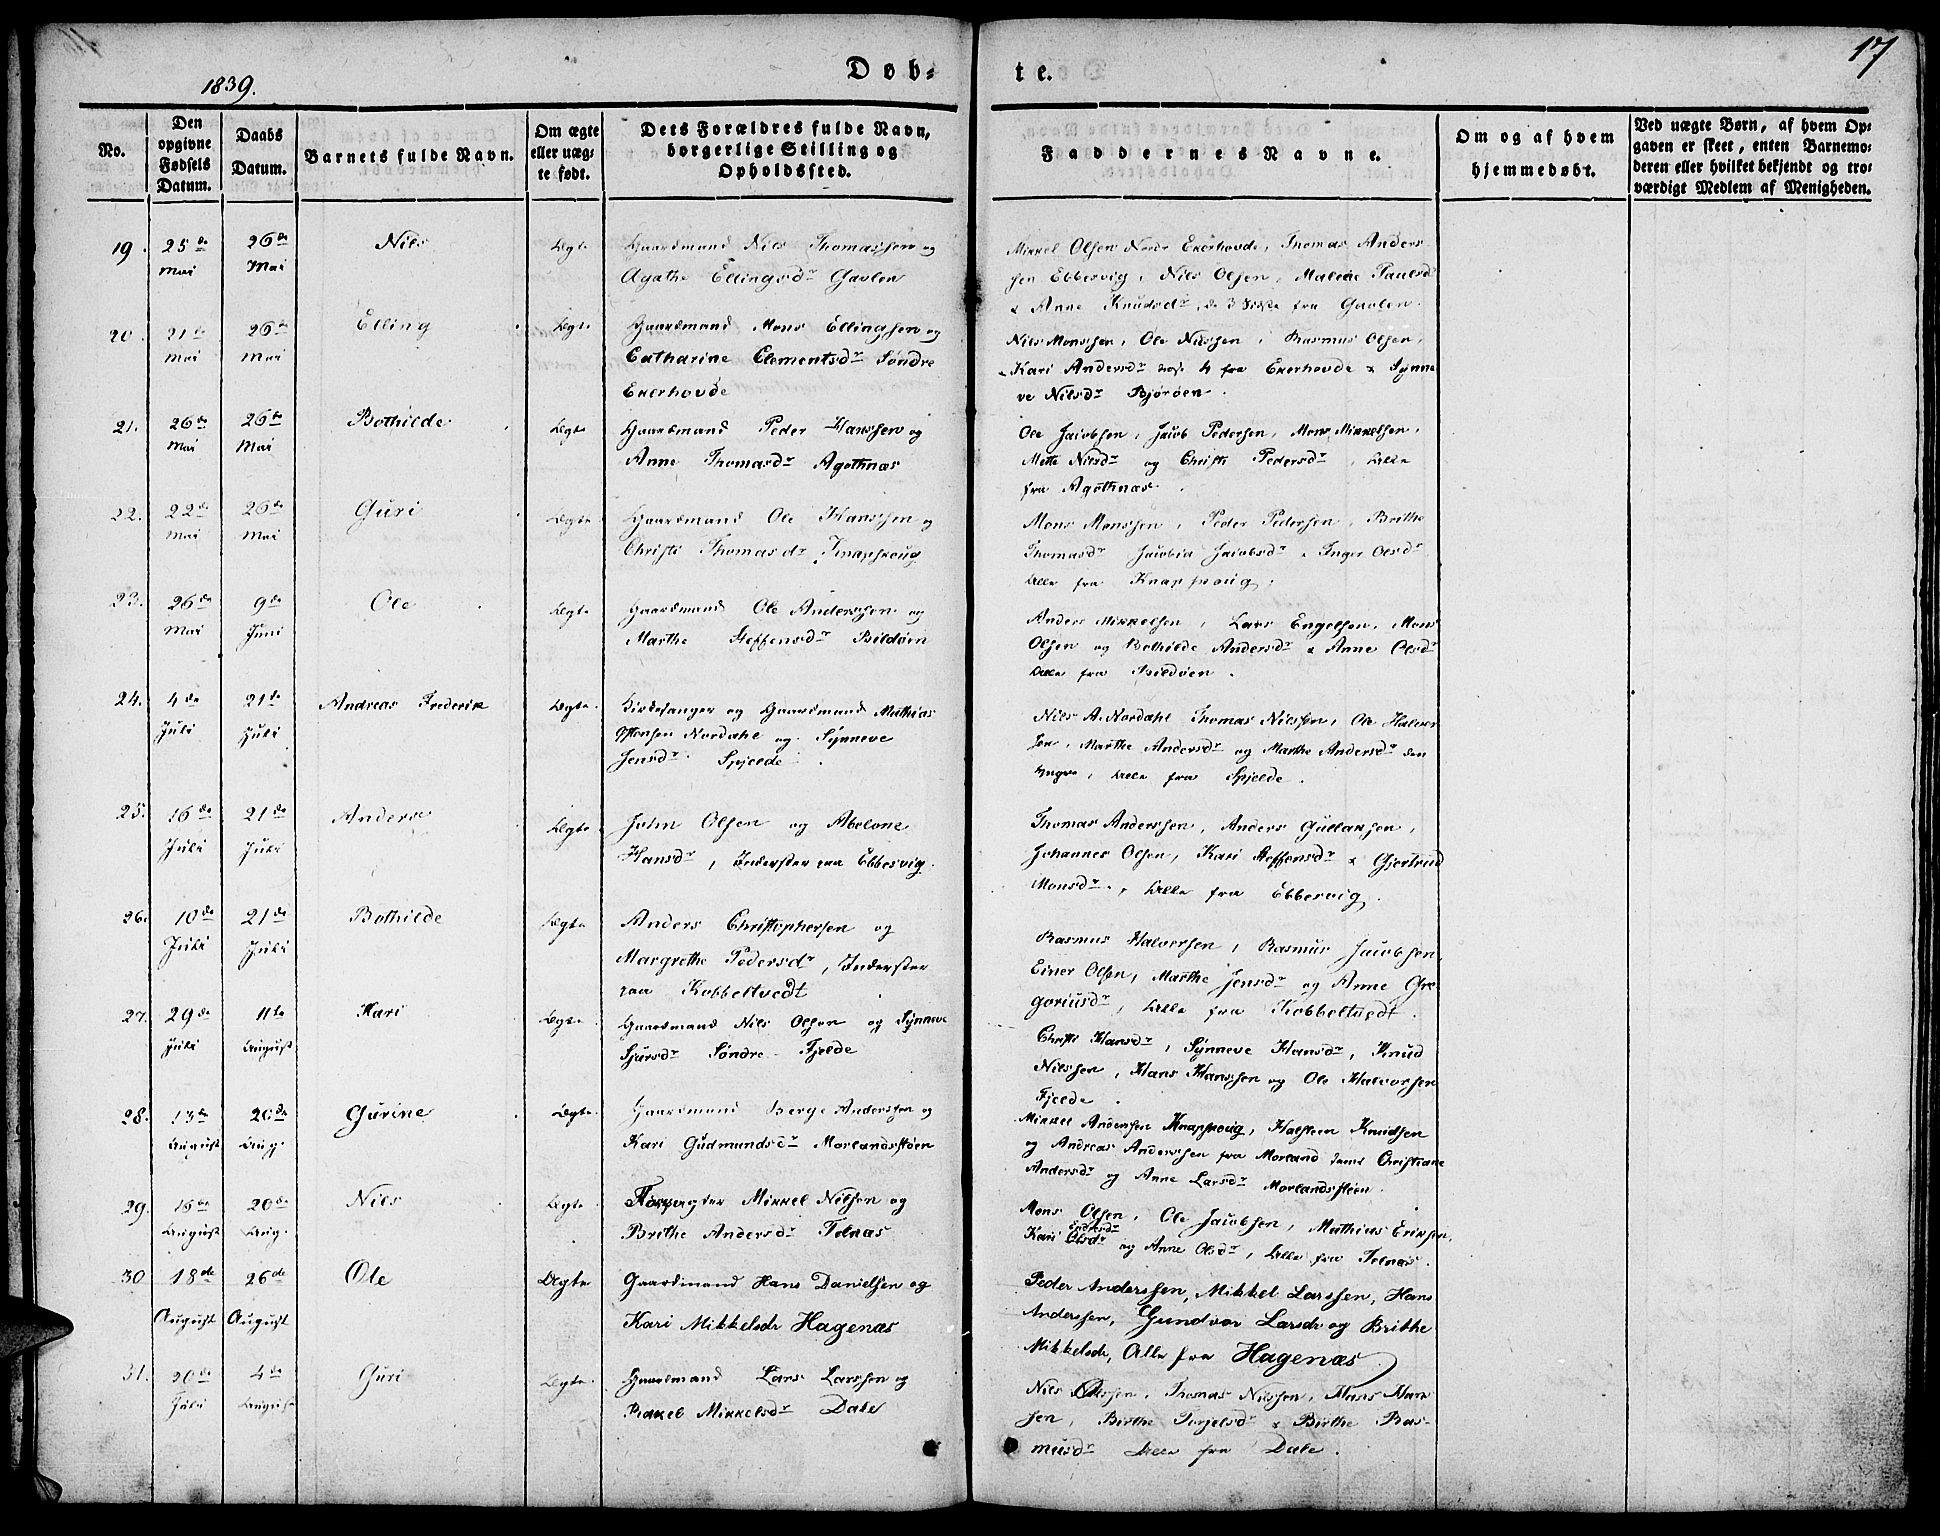 17
1839.
Døb-
te.
No.
Den opgivne Fødsels Datum.
Daabs Datum.
Barnets fulde Navn.
Om ægte eller uægte født.
Dets Forældres fulde Navn, borgerlige Stilling og Opholdssted.
Faddernes Navne.
Om og af hvem hjemmedøbt.
Ved uægte Børn, af hvem Opgaven er skeet, enten Barnemoderen eller hvilket bekjendt og troværdigt Medlem af Menigheden.
19. 25de Mai 26de Mai Nils Ægte
Gaardmand Nils Thomassen og
Agathe Ellingsdr Gavlen
Mikkel Olsen Nordr Ekerhovde, Thomas Anders-
sen Ebbesvig, Nils Olsen, Malene Paulsdr
& Anne Knudsdr, de 3 sidste fra Gavlen.
20. 21de Mai 26de Mai Elling Ægte
Gaardmand Mons Ellingsen og
Catharine Clementsdr Søndre
Ekerhovde
Nils Monssen, Ole Nilssen, Rasmus Olsen,
Kari Andersdr 4 fra Ekerhovde & Synne-
ve Nilsdr Bjørøen.
21. 26de Mai 26de Mai Bothilde Ægte
Gaardmand Peder Hanssen og
Anne Thomasdr Agothnæs
Ole Jacobsen, Jacob Pedersen, Mons Mikkelsen,
Mette Nilsdr og Christi Pedersdr, Alle
fra Agothnæs.
22. 22de Mai 26de Mai Guri Ægte
Gaardmand Ole Hanssen og
Christi Thomasdr Knapskoug
Mons Monssen, Peder Pedersen, Brithe
Thomasdr Jacobia Jacobsdr & Inger Olsdr
Alle fra Knapskoug.
23. 26de Mai 9de Juni Ole Ægte
Gaardmand Ole Anderssen og
Marthe Steffensdr Bildøen
Anders Mikkelsen, Lars Engelsen, Mons
Olsen og Bothilde Andersdr & Anne Olsdr
Alle fra Bildøen.
24. 4de Juli 21de Juli Andreas Frederik Ægte
Kirkesanger og Gaardmand Mathias
Monsen Nordahl og Synneve
Jensdr Spjelde.
Nils A. Nordahl Thomas Nilssen, Ole Halvor-
sen, Marthe Andersdr og Marthe Andersdr den
yngre, Alle fra Spjelde.
25. 16de Juli 21de Juli Anders Ægte
John Olsen og Abelone
Hansdr, Inderster paa Ebbesvig.
Thomas Anderssen, Anders Gullaksen,
Johannes Olsen, Kari Steffensdr & Gjertrud
Monsdr, Alle fra Ebbesvig.
26. 10de Juli 21de Juli Bothilde Ægte
Anders Christophersen og
Margrethe Pedersdr, Inderster
paa Kobbeltvedt
Rasmus Halvorsen, Rasmus Jacobsen,
Einer Olsen, Marthe Jensdr og Anne Gre-
goriusdr, Alle fra Kobbeltvedt.
27. 29de Juli 11te August Kari Ægte
Gaardmand Nils Olsen og Synneve
Sjursdr Søndre Fjelde
Christi Hansdr, Synneve Hansdr, Knud
Nilssen, Hans Hanssen og Ole Halvorsen
Fjelde.
28. 13de August 20de Aug. Gurine Ægte
Gaardmand Berge Anderssen og
Kari Gudmundsdr Morlandsstøen
Mikkel Anderssen Knapskoug, Halsteen Knudsen
og Andreas Anderssen fra Morland samt Christiane
Andersdr og Anne Larsdr Morlandsstøen.
29. 15de August 20de Aug. Nils Ægte
Forpagter Mikkel Nilsen og
Brithe Andersdr Telnæs
Mons Olsen, Ole Jacobsen, Mathias Eriksen,
Kari Olsdr Endresdr og Anne Olsdr, Alle fra Telnæs.
30 18de August 26de August Ole Ægte
Gaardmand Hans Danielsen og
Kari Mikkelsdr Hagenæs
Peder Anderssen, Mikkel Larssen, Hans
Anderssen, Gundvor Larsdr og Brithe
Mikkelsdr, Alle fra Hagenæs.
31. 20de Juli 4de August Guri Ægte
Gaardmand Lars Larssen og
Rakkel Mikkelsdr Dale
Nils Olssen, Thomas Nilssen, Hans Hans-
sen, Birthe Torjelsdr & Birthe Ras-
musdr Alle fra Dale.